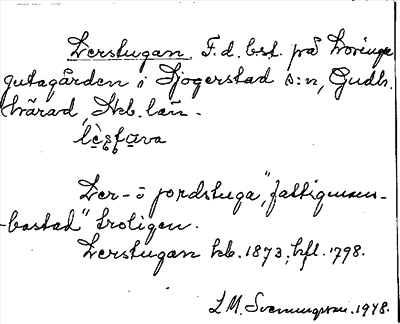 Lerstugan. F.d. bst. på Lovinge
gutagården i Sjogerstad s:n, Gudh.
härad, Skb. län.
Ler- = jordstuga, "fattigmans-
-bostad" troligen.
Lerstugan kb. 1873, hfl. 1798.
L M. Svenungsson. 1948.